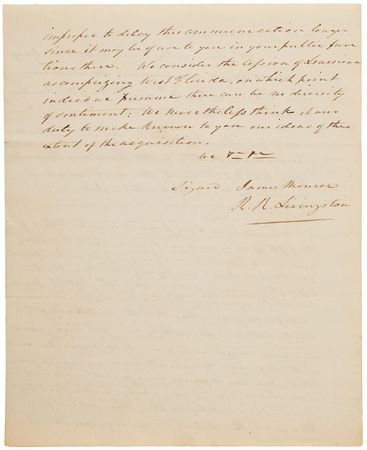 improper to delay this communication longer
since it may be of use to you in your public func
tions there. We consider the cession of Louisiana
as comprizing West Florida, on which point
indeed we presume there can be no diversity
of sentiment; We nevertheless think it our
duty to make known to you our ideas of the
extent of the acquisition.
We
Signed James Monroe
R. R. Livingston